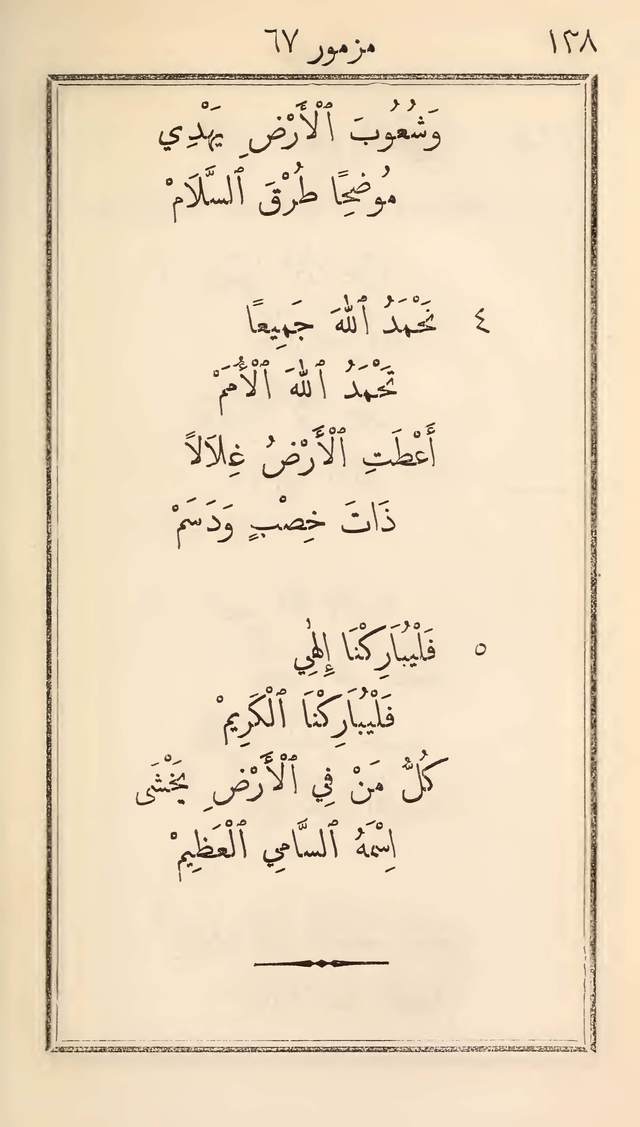 ١٣٨ مزمور ٦٧
وَشُعُوبَ ٱلْأَرْضِ يَهْدِي
مُوضِحًا طُرْقَ ٱلسَّلَامْ
٤ نَحْمَدُ ٱللهَ جَمِيعًا
تَحْمَدُ ٱللهَ ٱلْأُمَمْ
أَعْطَتِ ٱلْأَرْضُ غِلَالاً
ذَاتَ خِصْبٍ وَدَسَمْ
٥ فَلْيُبَارِكْنَا إِلٰهِي
فَلْيُبَارِكْنَا ٱلْكَرِيمْ
كُلُّ مَنْ فِي ٱلْأَرْضِ يَخْشَى
اِسْمَهُ ٱلسَّامِي ٱلْعَظِيمْ